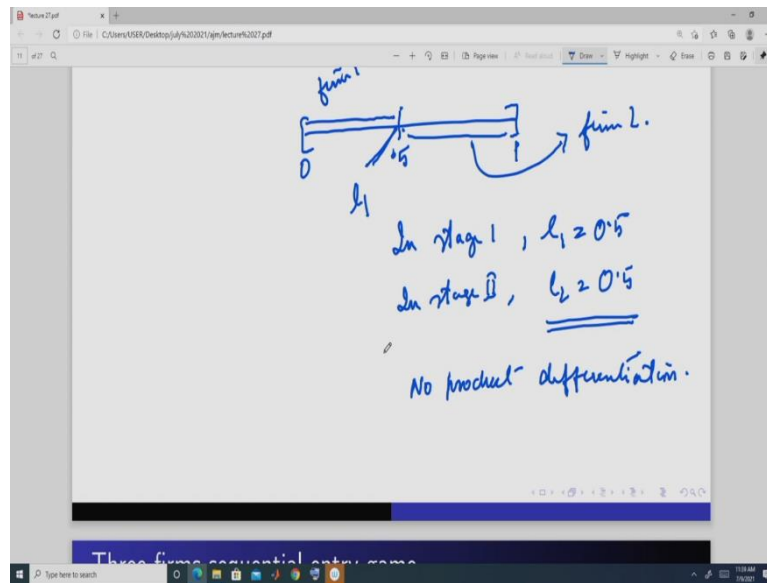 *lecture 27.pdf
File | C:/Users/USER/Desktop/july%202021/ajm/lecture%2027.pdf
11 of 27
Page view
Read aloud
Draw
Highlight
Erase
firm 1
0
.5
1
firm 2.
l1
In stage 1, l1 = 0.5
In stage II, l2 = 0.5
No product differentiation.
Three firms sequential entry game
Type here to search
11:59 AM
7/9/2021